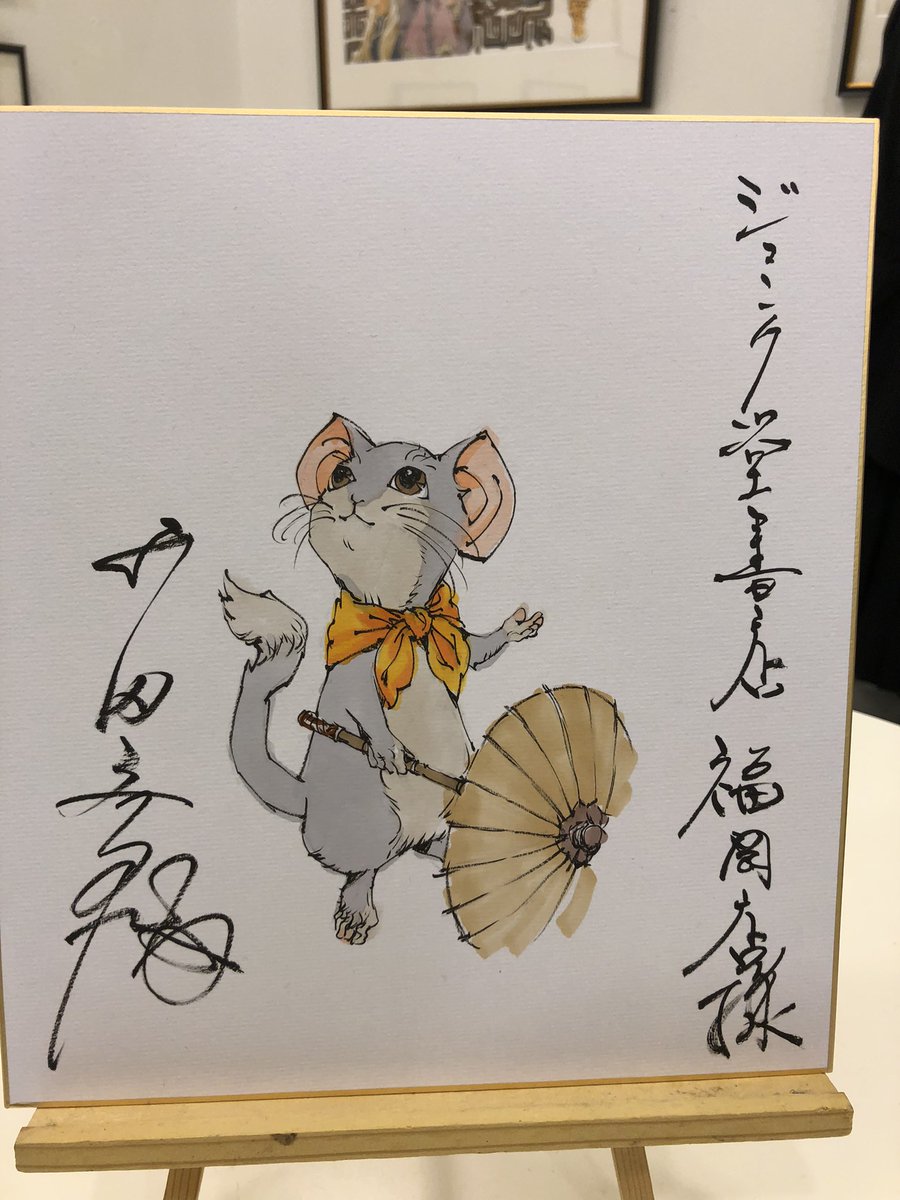 ジュンク堂書店 福岡店様
山田章博